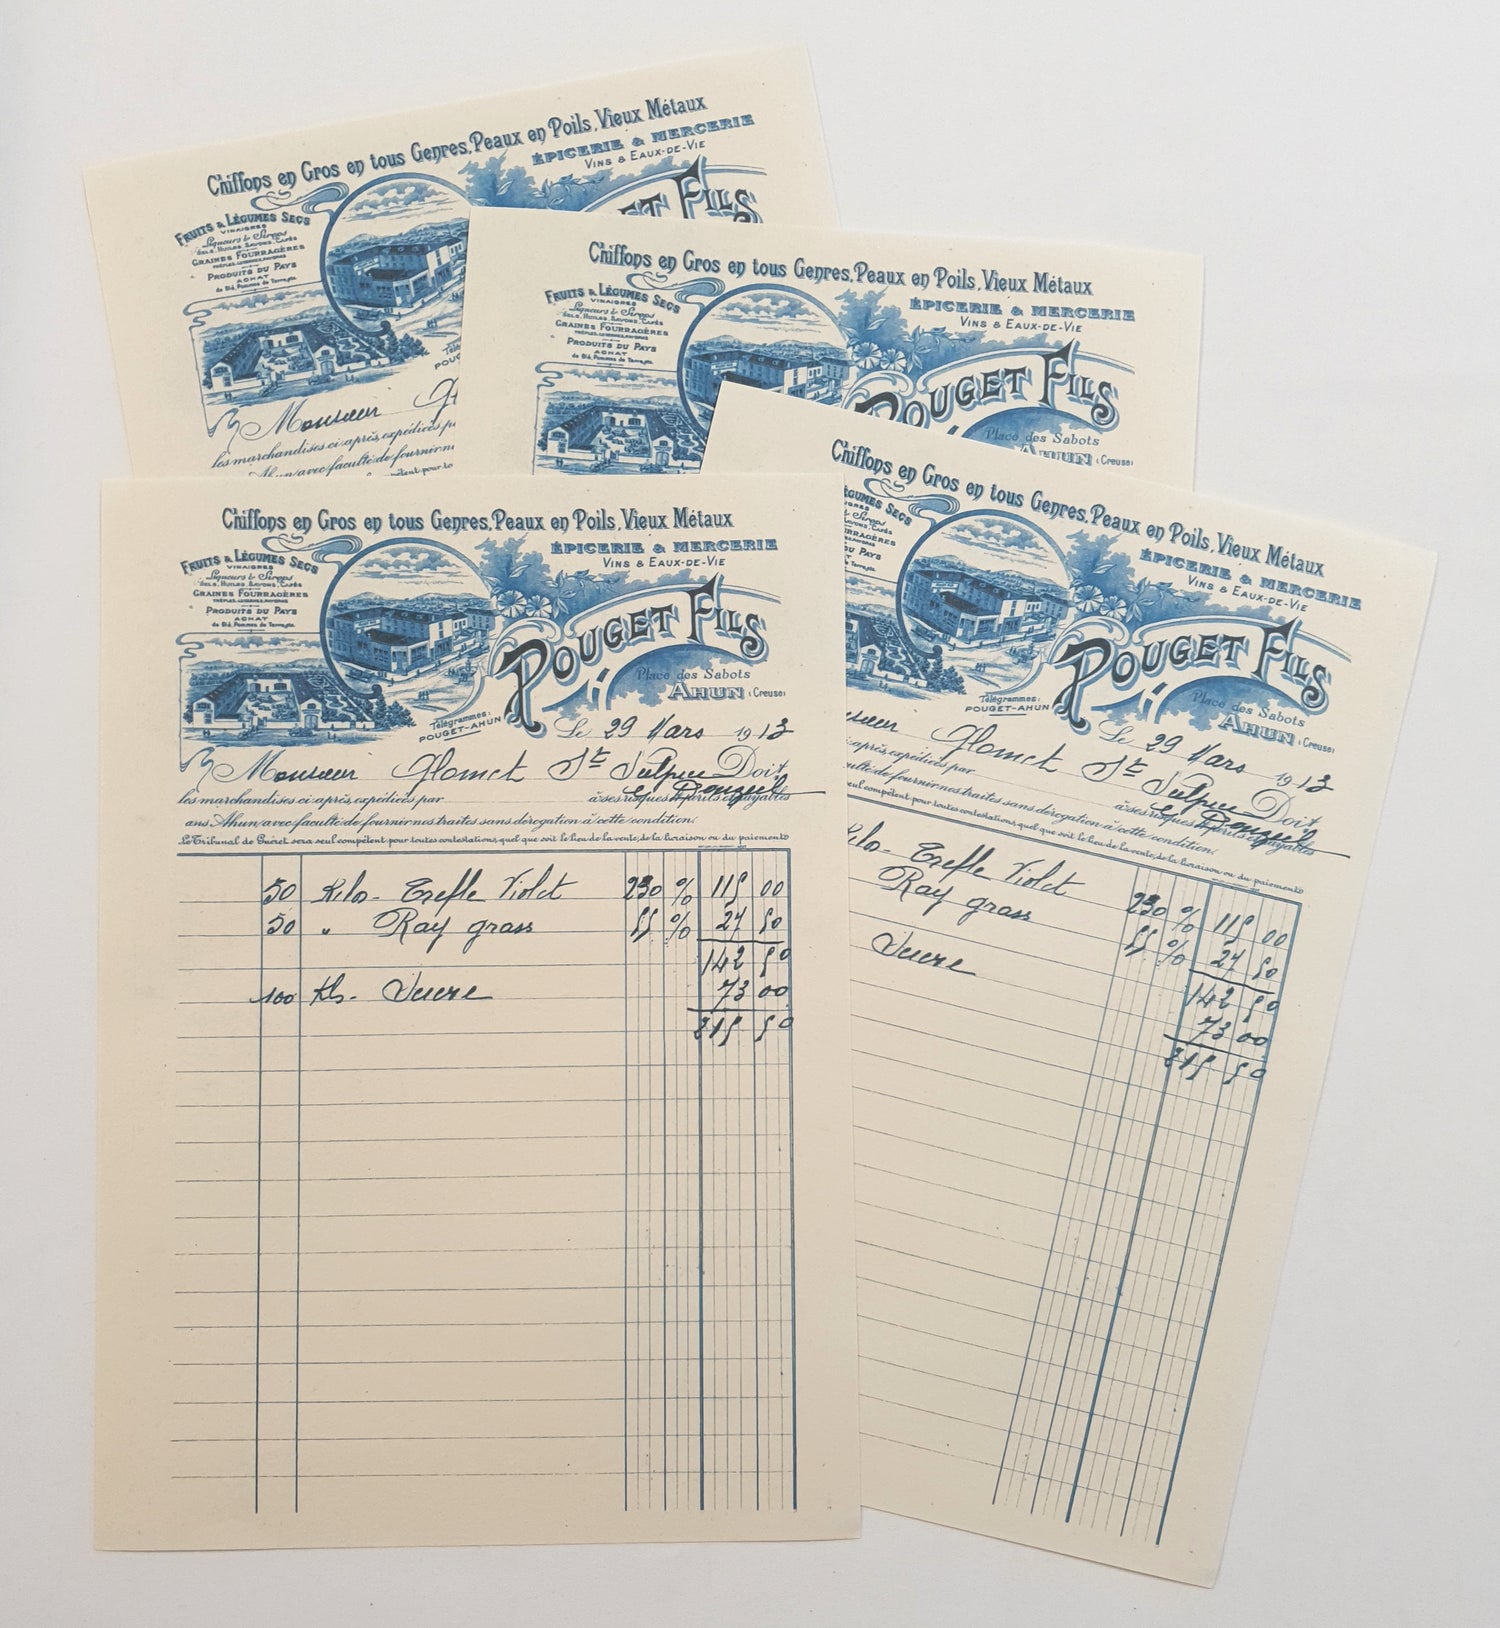 Chiffons en Gros en tous Genres, Peaux en Poils, Vieux Métaux
ÉPICERIE & MERCERIE
VINS & EAUX-DE-VIE
FRUITS & LÉGUMES SECS
VINAIGRES
Liqueurs & Sirops
SELS, HUILES, SAVONS, CAFÉS
GRAINES FOURRAGÈRES
PRODUITS DU PAYS
ACHAT
de Blé, Pommes de Terre, etc
FILS
Monsieur
les marchandises ci-après, expédiées
Ahun avec faculté de fournir
Chiffons en Gros en tous Genres, Peaux en Poils, Vieux Métaux
ÉPICERIE & MERCERIE
VINS & EAUX-DE-VIE
FRUITS & LÉGUMES SECS
VINAIGRES
Liqueurs & Sirops
SELS, HUILES, SAVONS, CAFÉS
GRAINES FOURRAGÈRES
PRODUITS DU PAYS
ACHAT
de Blé, Pommes de Terre, etc
POUGET FILS
Place des Sabots
AHUN (Creuse)
Chiffons en Gros en tous Genres, Peaux en Poils, Vieux Métaux
ÉPICERIE & MERCERIE
VINS & EAUX-DE-VIE
FRUITS & LÉGUMES SECS
VINAIGRES
Liqueurs & Sirops
SELS, HUILES, SAVONS, CAFÉS
GRAINES FOURRAGÈRES
PRODUITS DU PAYS
ACHAT
de Blé, Pommes de Terre, etc
POUGET FILS
Place des Sabots
AHUN (Creuse)
Télégrammes:
POUGET-AHUN
Le 29 Mars 1913
Monsieur St Sulpice Doit
les marchandises ci-après, expédiées par à ses risques et périls et payables
ans Ahun avec faculté de fournir nos traites sans dérogation à cette condition.
Le Tribunal de Guéret sera seul compétent pour toutes contestations, quel que soit le lieu de la vente, de la livraison ou du paiement
50 Kilos - Trefle Violet 230 % 115 00
50 " Ray grass 55 % 27 50
142 50
100 Kls - Sucre 73 00
215 50
Chiffons en Gros en tous Genres, Peaux en Poils, Vieux Métaux
ÉPICERIE & MERCERIE
VINS & EAUX-DE-VIE
LÉGUMES SECS
& Sirops
DU PAYS
POUGET FILS
Place des Sabots
AHUN (Creuse)
Télégrammes:
POUGET-AHUN
Le 29 Mars 1913
St Sulpice Doit
après, expédiées par à ses risques et périls et payables
faculté de fournir nos traites sans dérogation à cette condition.
seul compétent pour toutes contestations, quel que soit le lieu de la vente, de la livraison ou du paiement
Trefle Violet 230 % 115 00
Ray grass 55 % 27 50
142 50
Sucre 73 00
215 50